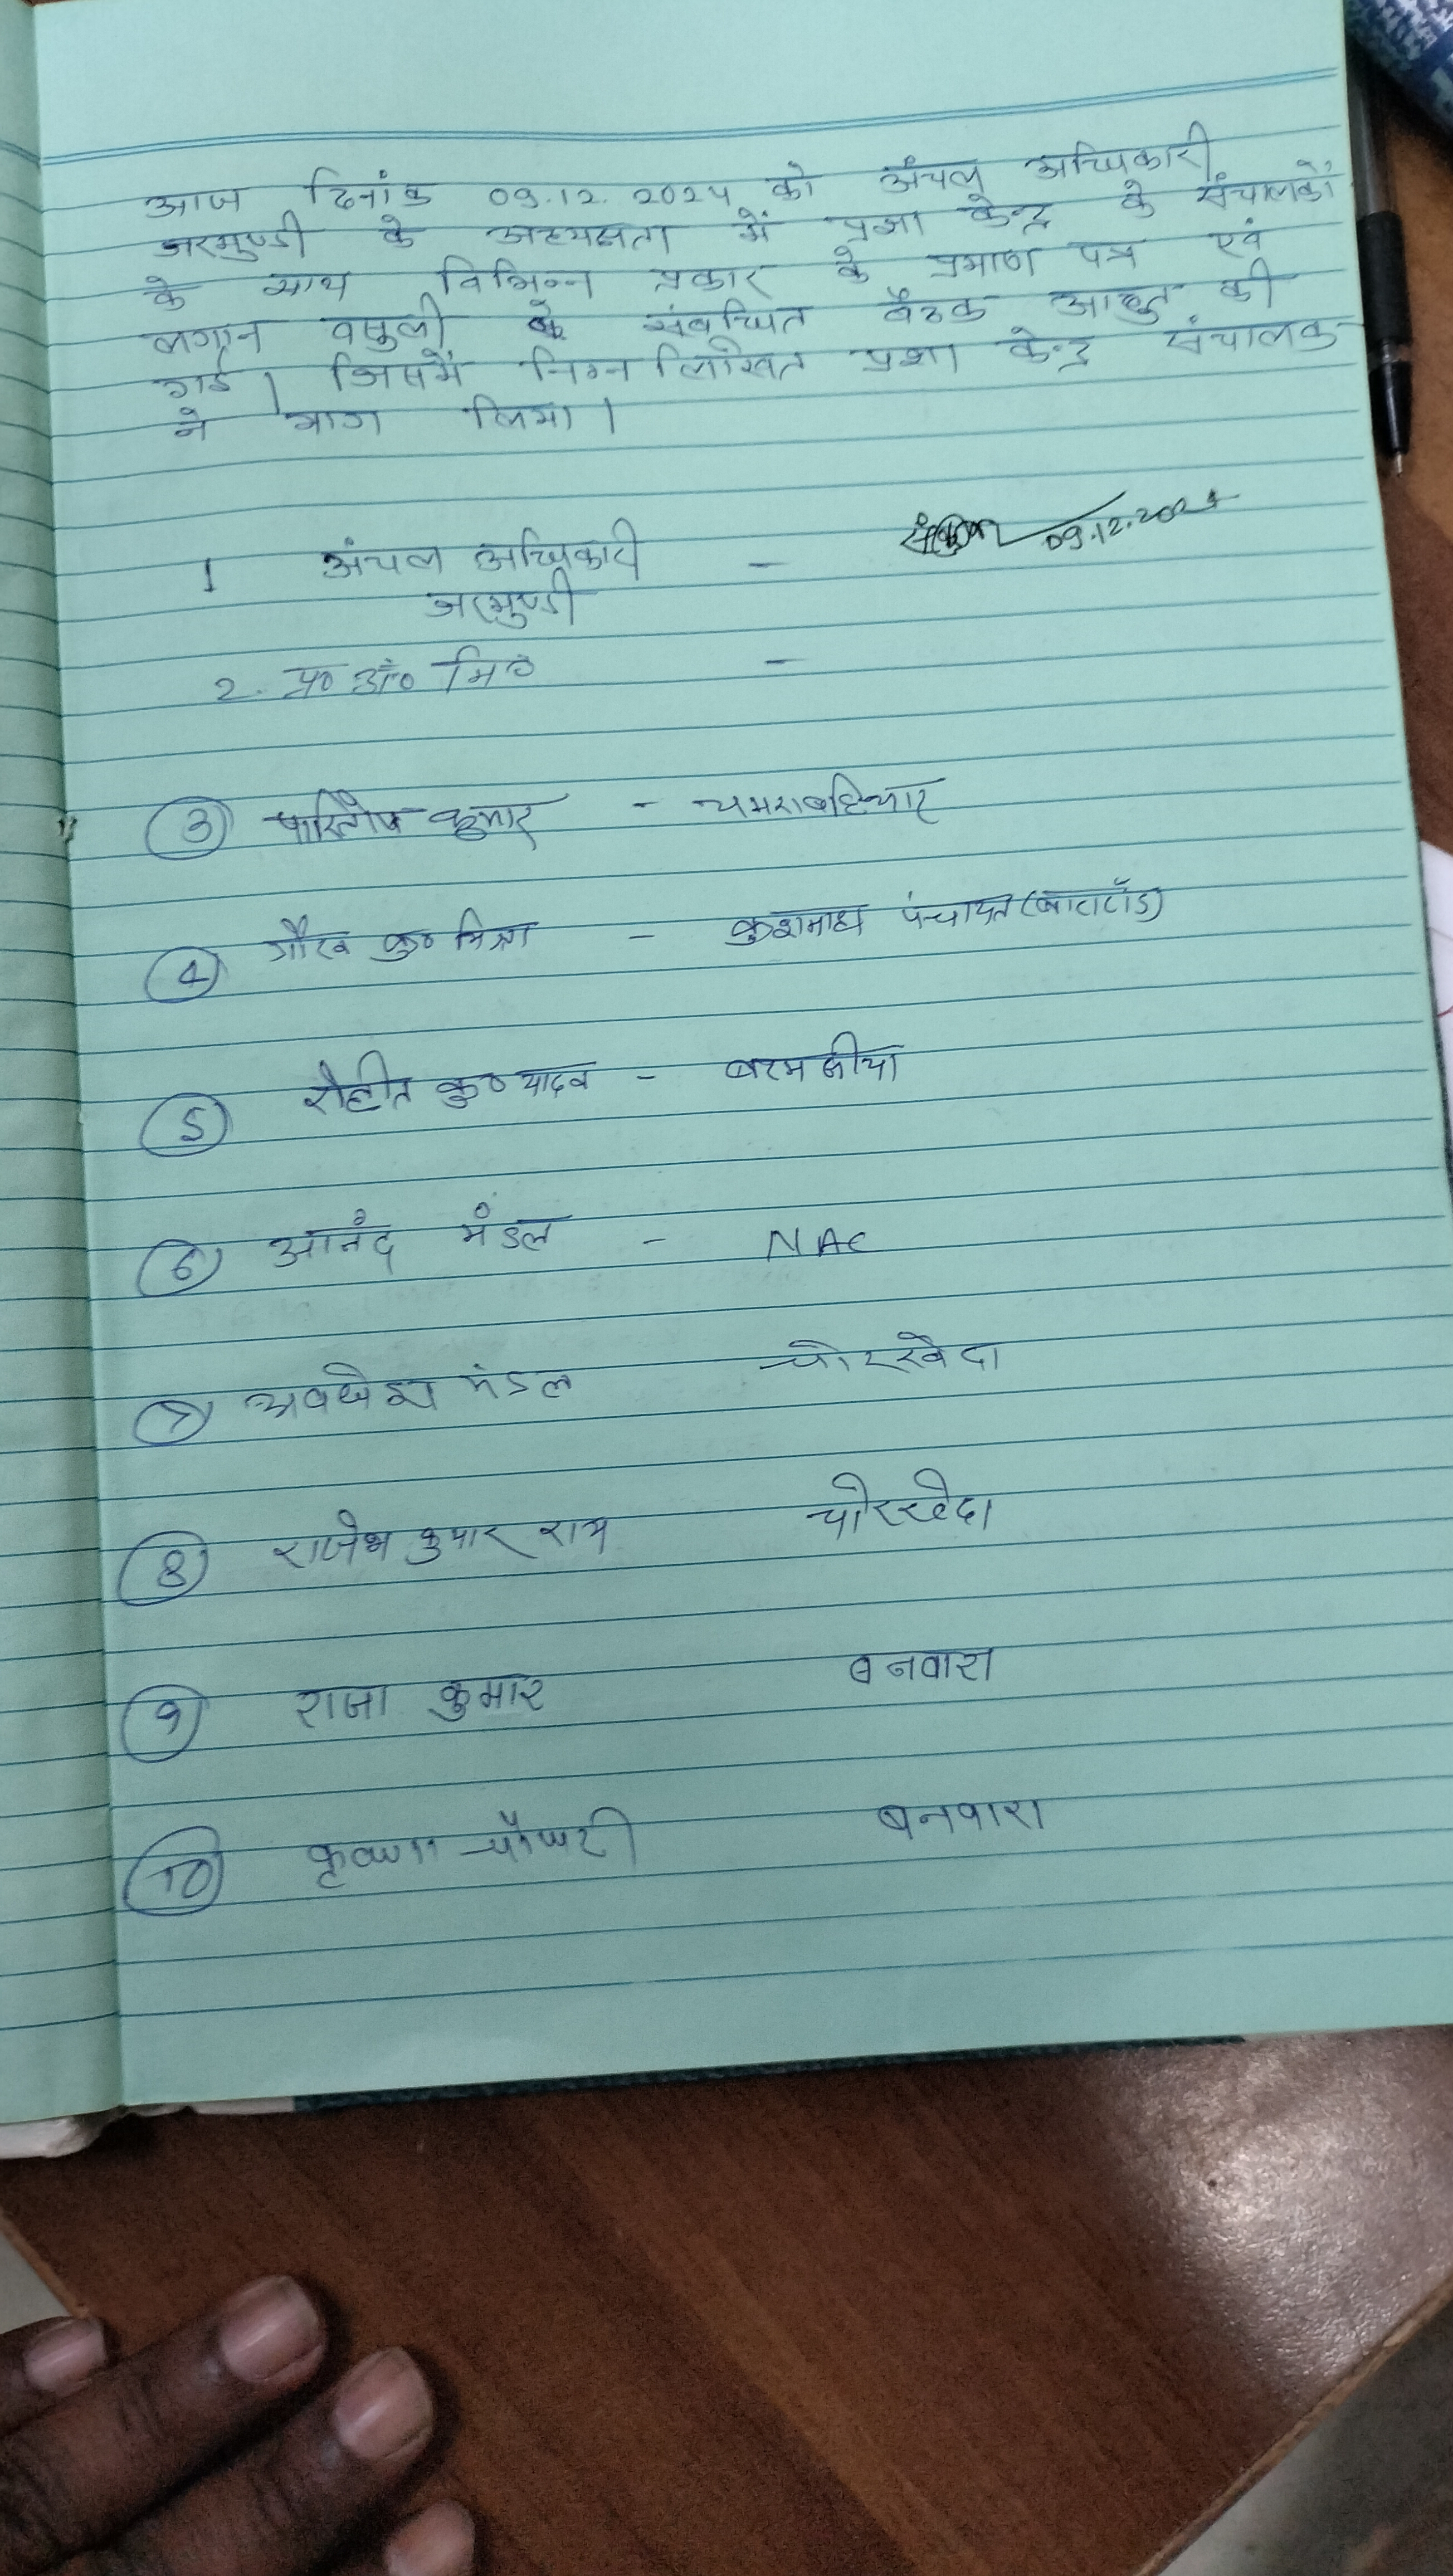 आज दिनांक 09.12.2024 को अंचल अधिकारी
जरमुण्डी के अध्यक्षता में प्रज्ञा केन्द्र के संचालकों
के साथ विभिन्न प्रकार के प्रमाण पत्र एवं
लगान वसुली के संबंधित बैठक आहुत की
गई। जिसमें निम्न लिखित प्रज्ञा केन्द्र संचालक
ने भाग लिया।
09.12.2024
1 अंचल अधिकारी -
जरमुण्डी
2. प्र० अं० नि० -
3 पारितोष कुमार - चमराबहियार
4 गौरव कु० मिश्रा - कुशमाहा पंचायत
5 रोहीत कु० यादव -
6 आनंद मंडल - NAC
7 अवधेश मंडल चोरखेदा
8 राजेश कुमार राय चोरखेदा
9 राजा कुमार बनवारा
10 कृष्णा चौधरी बनवारा